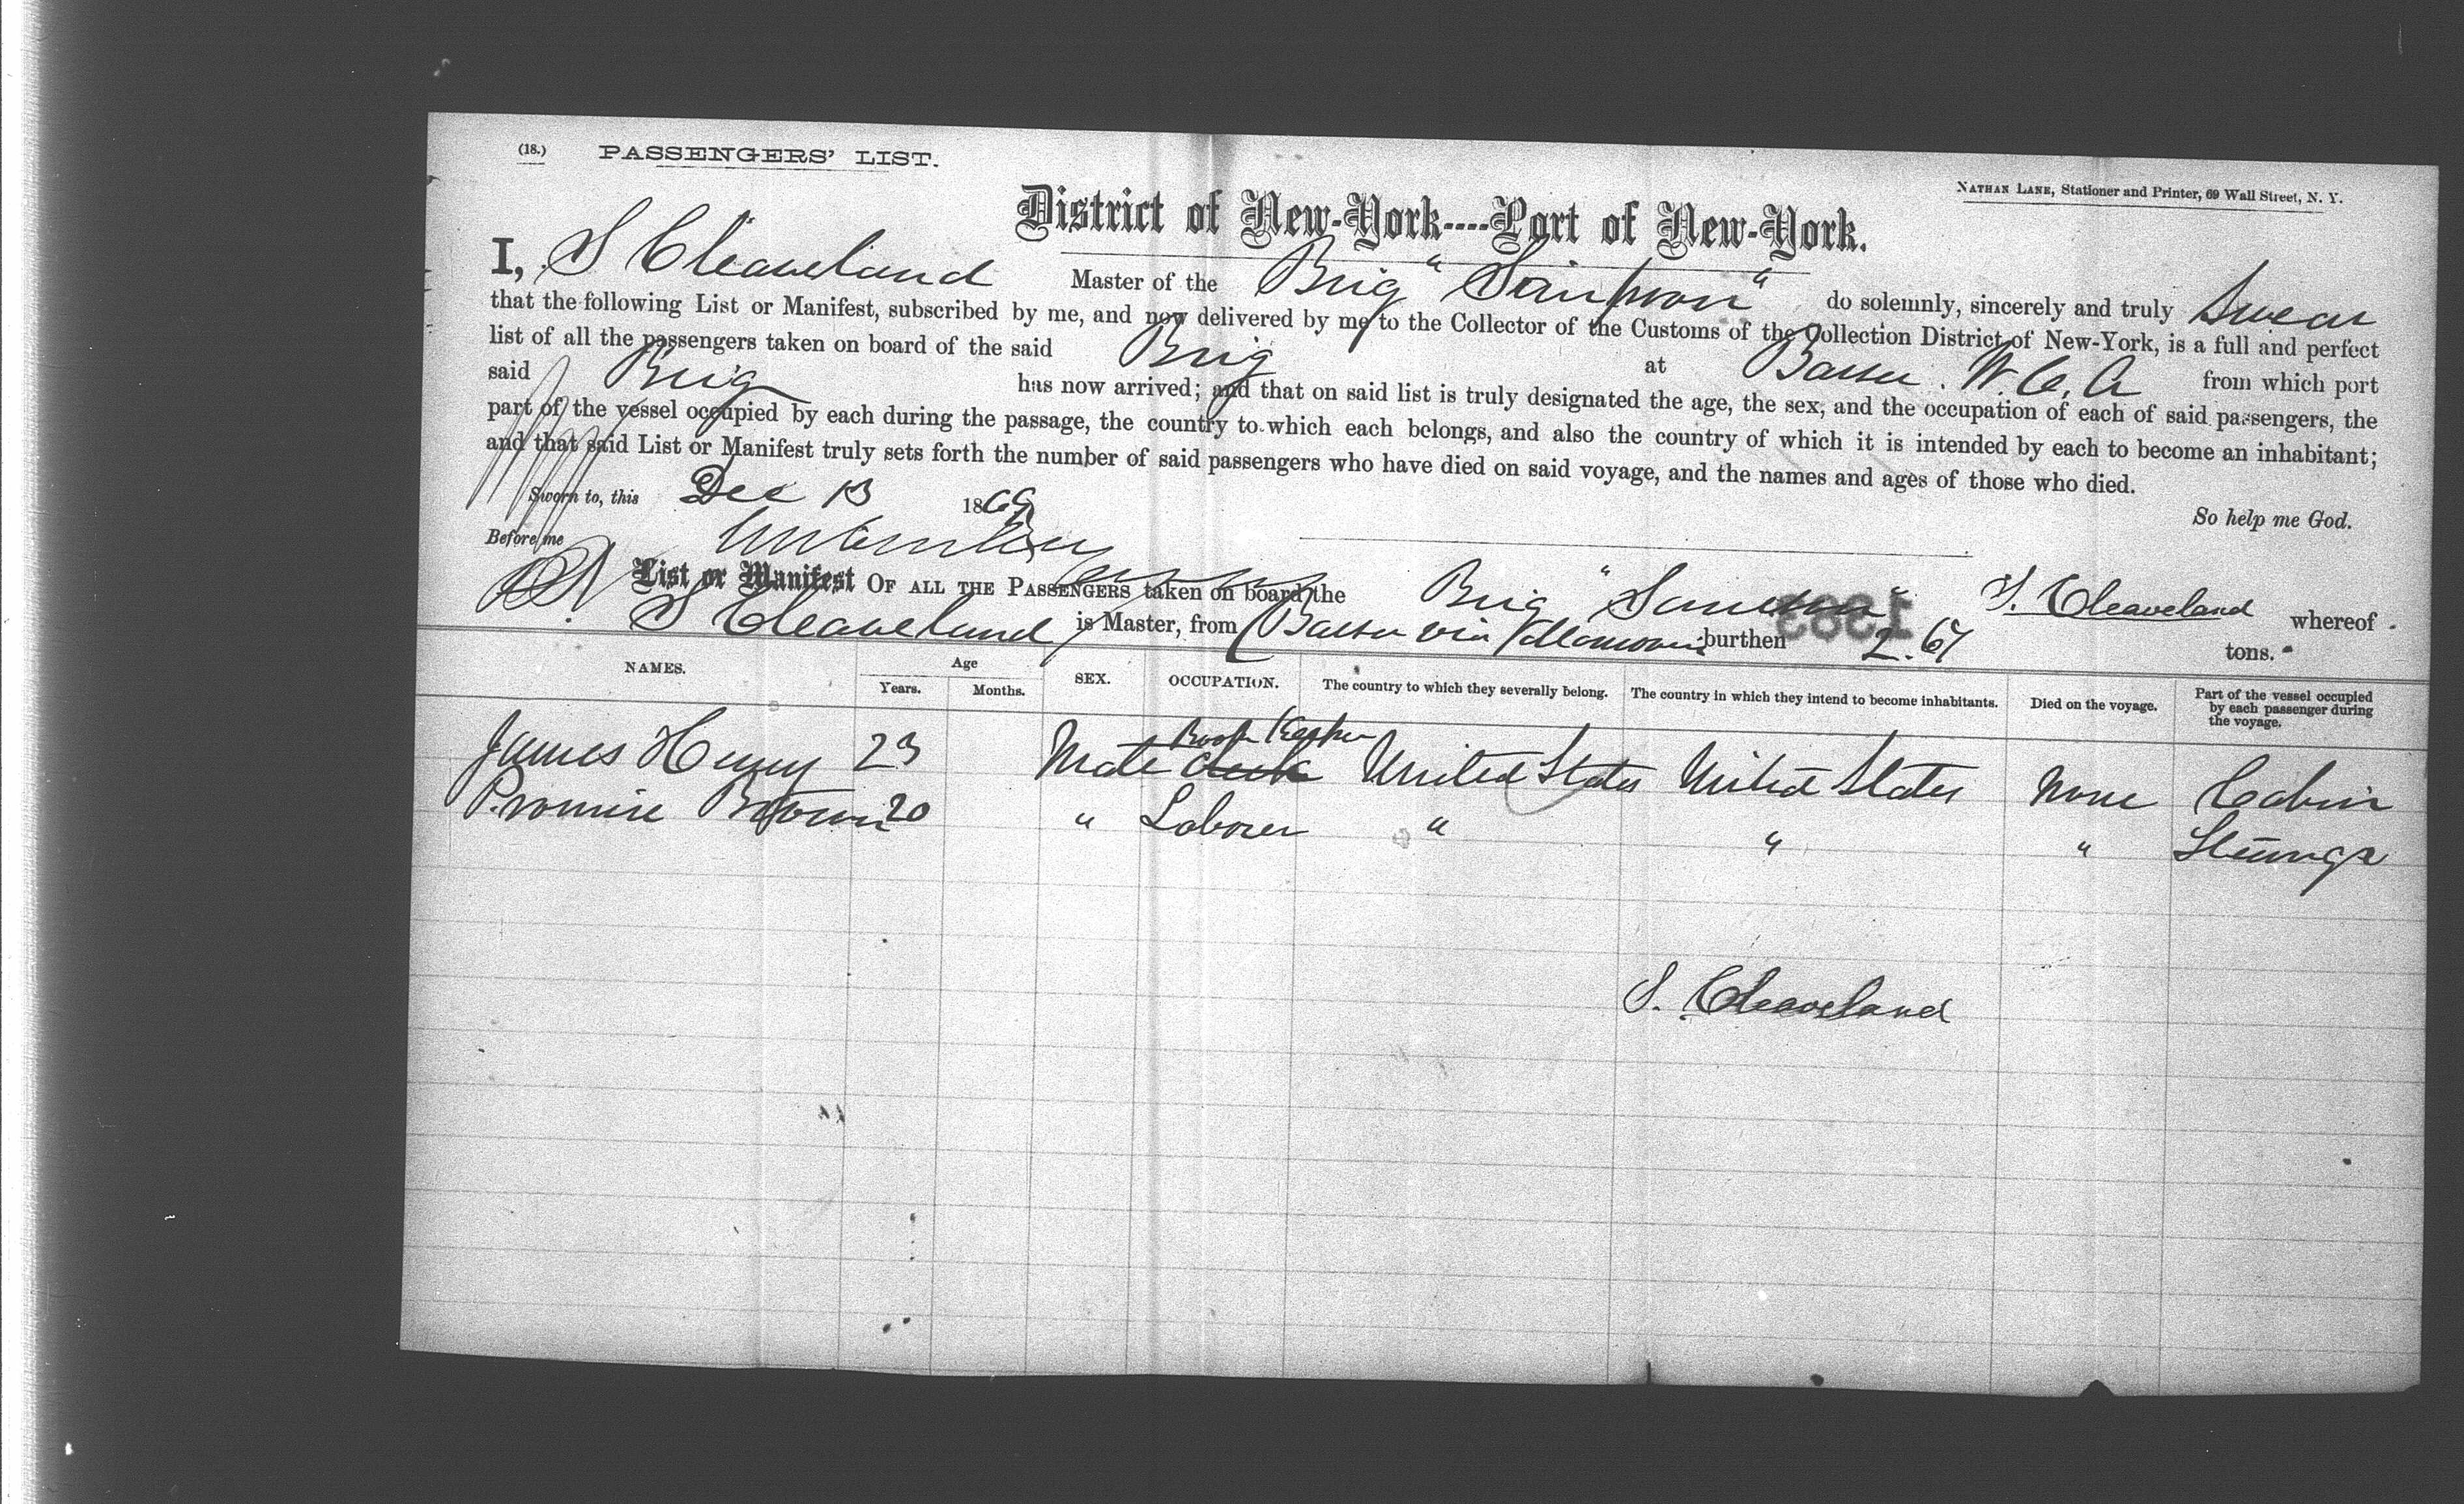 (18.) PASSENGERS' LIST.
NATHAN LANE, Stationer and Printer, 69 Wall Street, N. Y.
District of New-York----Port of New-York.
I, S Cleaveland Master of the Brig "Sampson" do solemnly, sincerely and truly Swear
that the following List or Manifest, subscribed by me, and now delivered by me to the Collector of the Customs of the Collection District of New-York, is a full and perfect
list of all the passengers taken on board of the said Brig at W. C. A from which port
said Brig has now arrived; and that on said list is truly designated the age, the sex, and the occupation of each of said passengers, the
part of the vessel occupied by each during the passage, the country to which each belongs, and also the country of which it is intended by each to become an inhabitant;
and that said List or Manifest truly sets forth the number of said passengers who have died on said voyage, and the names and ages of those who died.
Sworn to, this Dec 13 1869
So help me God.
Before me
List or Manifest OF ALL THE PASSENGERS taken on board the Brig "Sampson" S. Cleaveland whereof
S Cleaveland is Master, from via burthen 267 tons.
1383
NAMES. Age Years. Months. SEX. OCCUPATION. The country to which they severally belong. The country in which they intend to become inhabitants. Died on the voyage. Part of the vessel occupied by each passenger during the voyage.
James Henry 23 Male Clerk Book Keeper United States United States None Cabin
Promise Brown 20 " Laborer " " " Steerage
S. Cleaveland